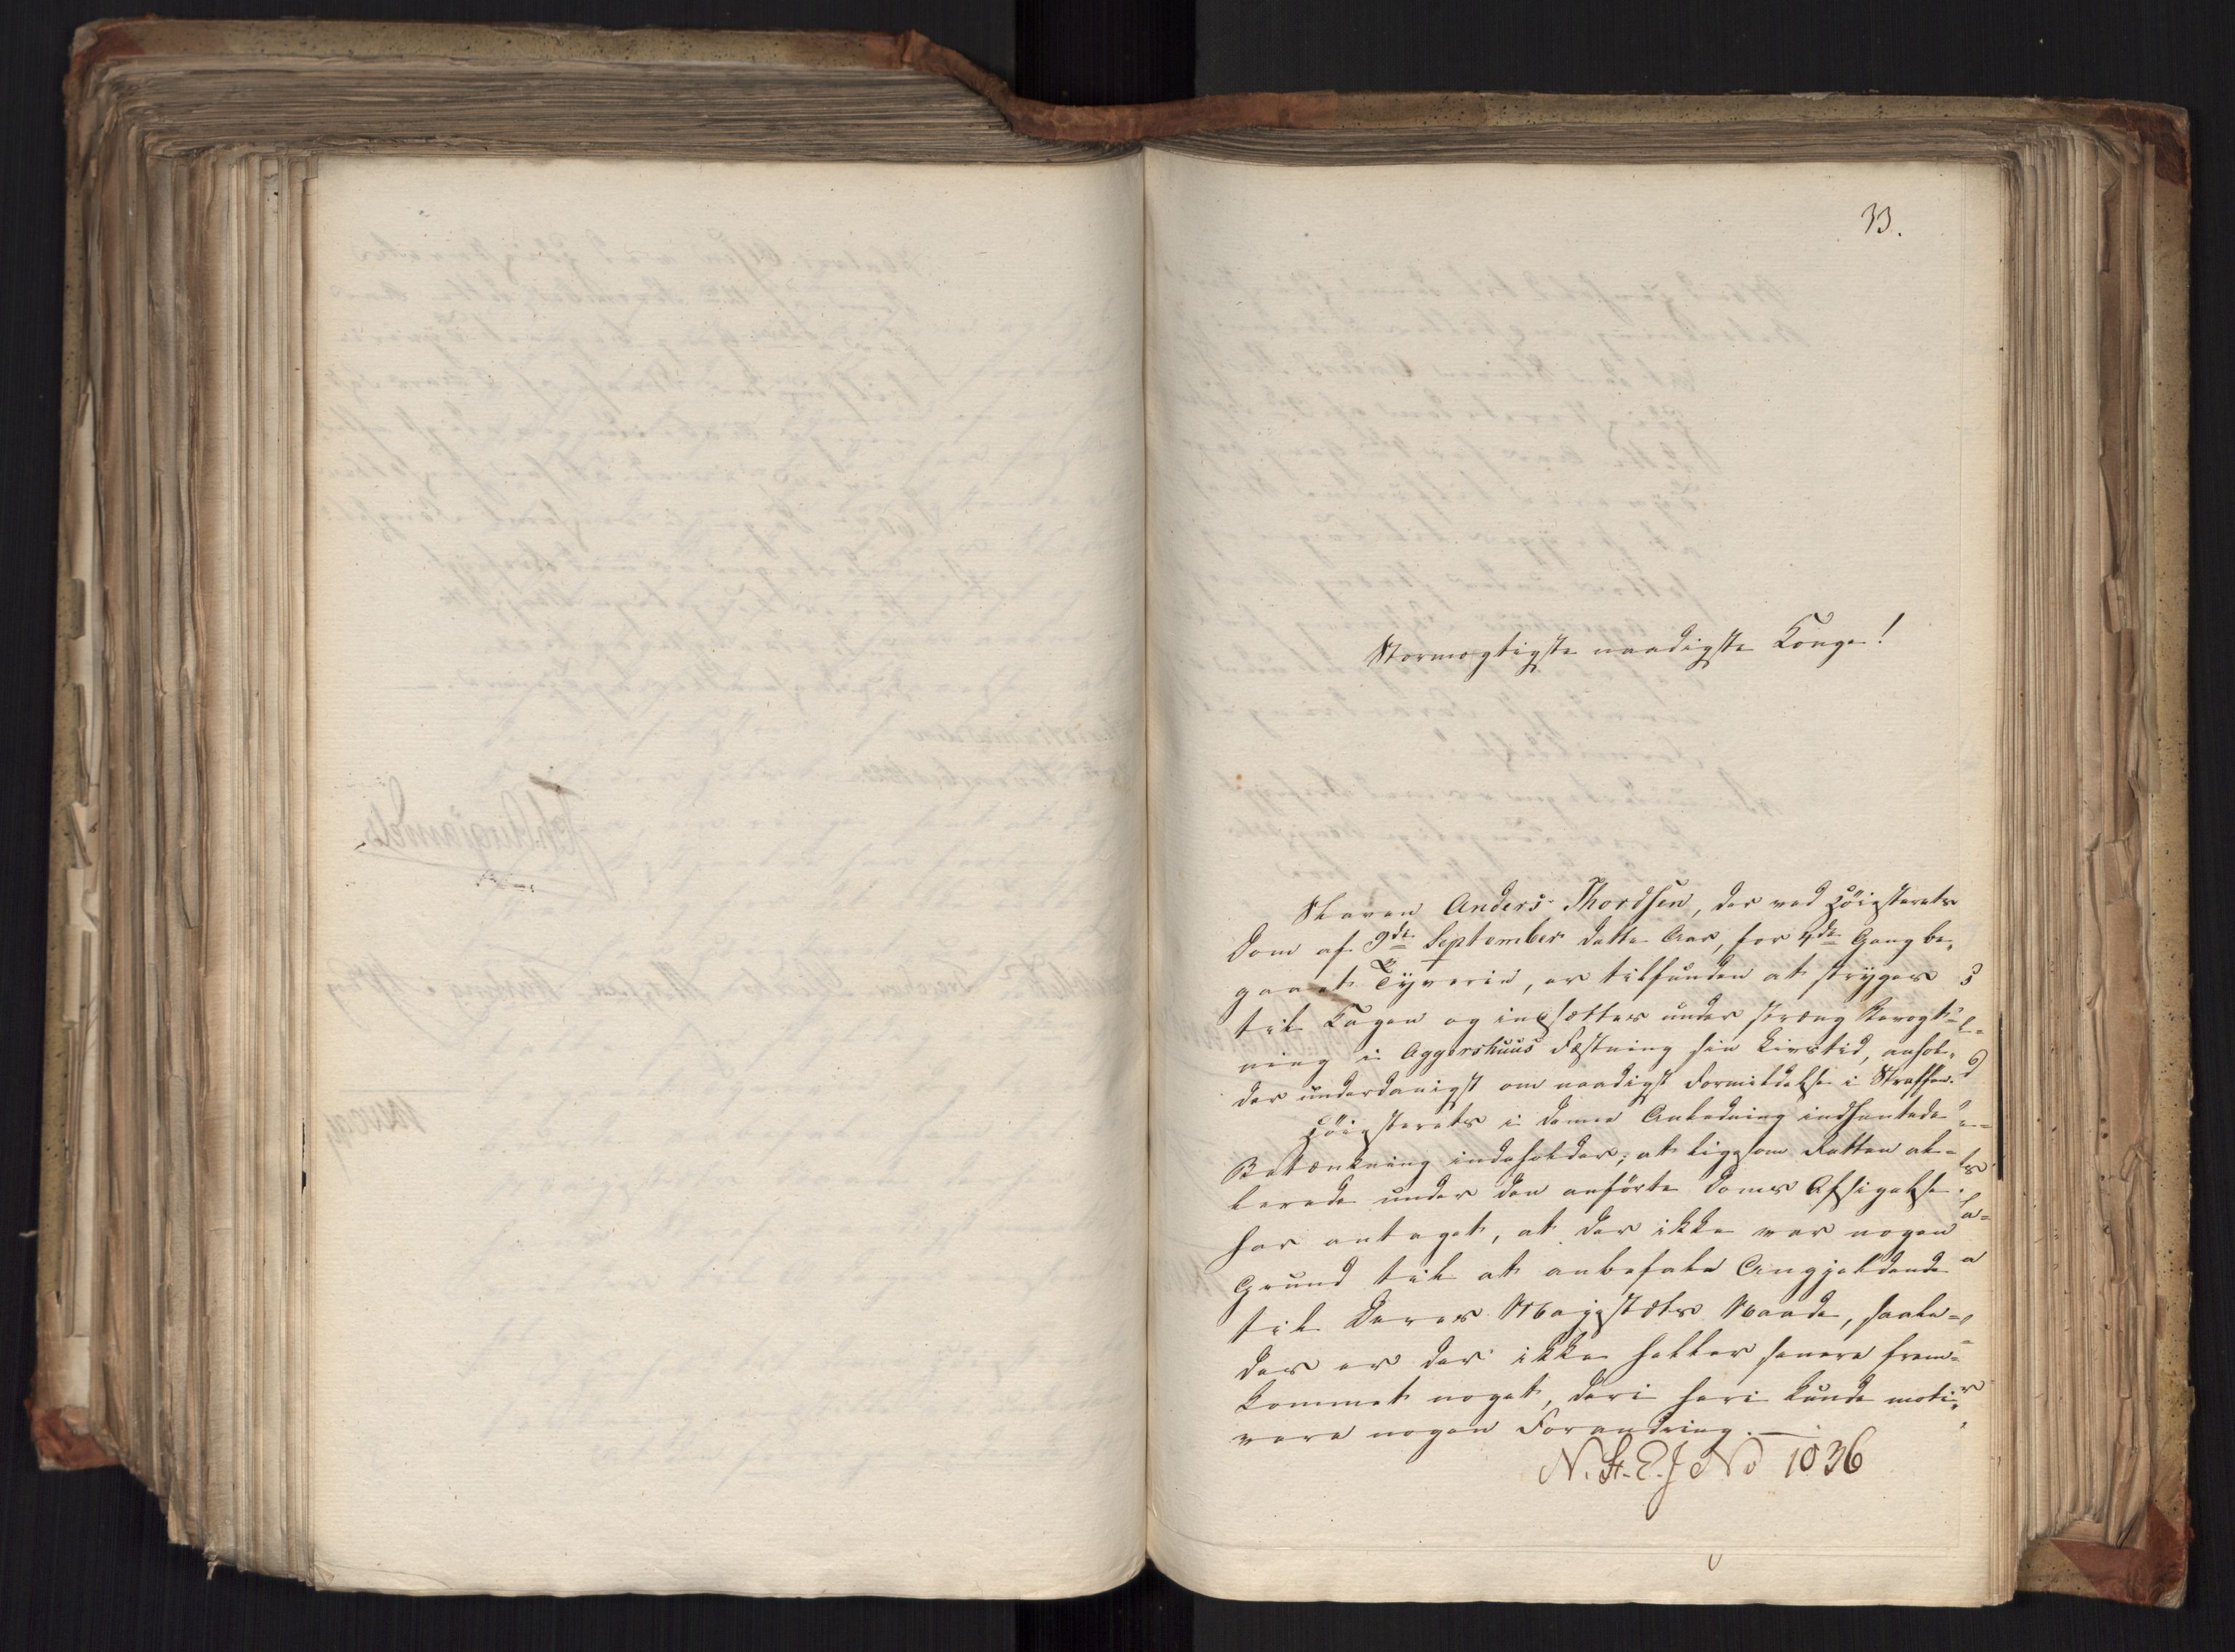 33.
Stormægtigste naadigste Konge!
Slaven Anders Thordsen, der ved Höiesterets
Dom af 9de September dette Aar, for 4de Gang be-
gaaet Tyverie, er tilfunden at stryges
til Kagen og indsættes under streng Bevogt-
ning i Aggershuus Fæstning sin Livstid, anhol-
der underdanigst om naadigst Formildelse i Straffen.
Höiesterets i denne Anledning indhentede
Betænkning indeholder; at ligesom Retten al-
lerede under den anförte Doms Afsigelse
har antaget, at der ikke var nogen
Grund til at anbefale Angjeldende
til Deres Majestæts Naade, saale-
des er der ikke heller senere frem-
kommet noget, der i heri kunde moti-
vere nogen Forandring.
N. St. E. J No 1036